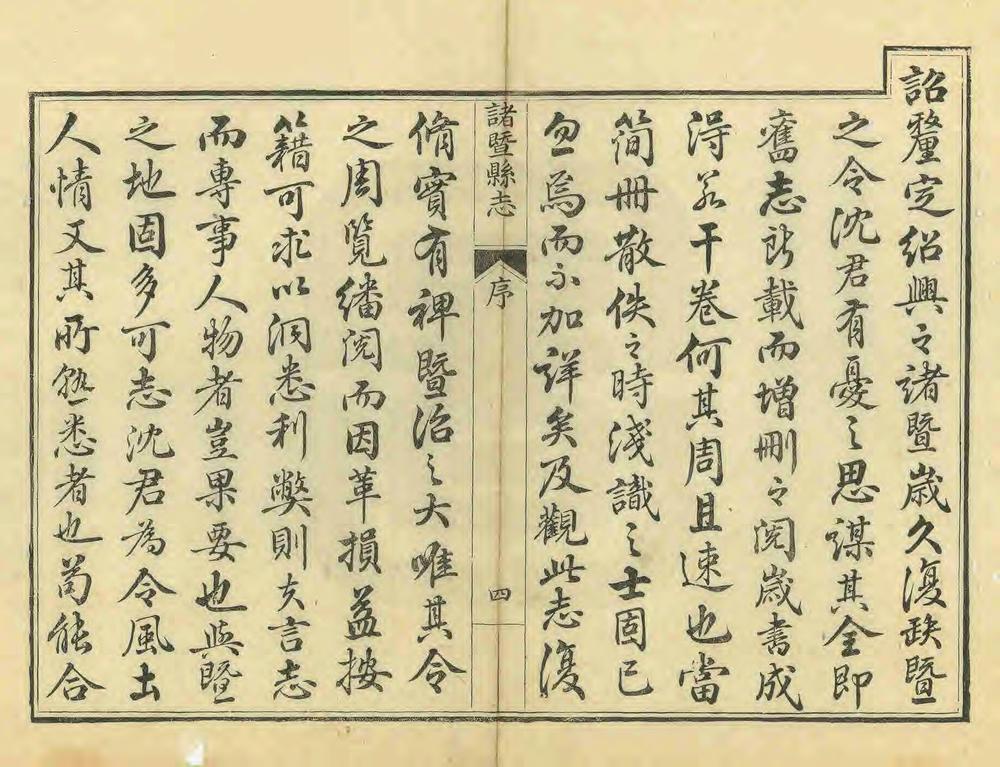 詔釐定紹興之諸暨歲久復缺暨
之令沈君有憂之思謀其全即
舊志所載而增刪之閱歲書成
得若干卷何其周且速也當
簡冊散佚之時淺識之士固已
忽焉而不加詳矣及觀此志復
諸暨縣志
序
四
脩實有裨暨治之大唯其令
之周覽繙閱而因革損益按
籍可求以洞悉利弊則夫言志
而專事人物者豈果要也與暨
之地固多可志沈君為令風土
人情又其所熟悉者也苟能合